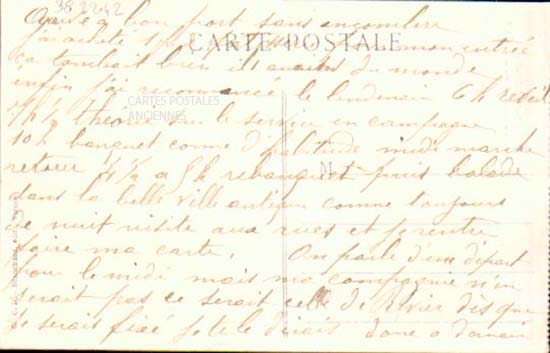 38 2242
Arrivé a bon port sans encombre
j'ai acheté mon entrée
CARTE POSTALE
ça tombait bien il avait du monde
enfin j'ai recommencé le lendemain 6 h réveil
7 h ½ théorie sur le service en campagne
CARTES POSTALES
ANCIENNES
10 h banquet comme d'habitude midi marche
retour 4 ½ a 5 h rebanquet puis balade
dans la belle ville antique comme toujours
de nuit visite aux rues et je rentre
faire ma carte. On parle d'un départ
pour le midi mais ma compagnie n'en
serait pas ce serait celle de Rivier dès que
je serais fixé je te le dirais donc a demain